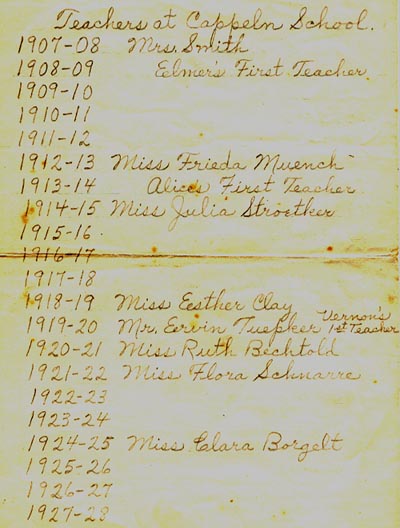 Teachers at Cappeln School.
1907-08 Mrs. Smith
1908-09 Eelmer's First Teacher.
1909-10
1910-11
1911-12
1912-13 Miss Frieda Muench
1913-14 Alices First Teacher
1914-15 Miss Julia Stroetker
1915-16
1916-17
1917-18
1918-19 Miss Eesther Clay
1919-20 Mr. Eervin Tuepker Vernon's 1st Teacher
1920-21 Miss Ruth Bechtold
1921-22 Miss Flora Schnarre
1922-23
1923-24
1924-25 Miss Clara Borgelt
1925-26
1926-27
1927-28